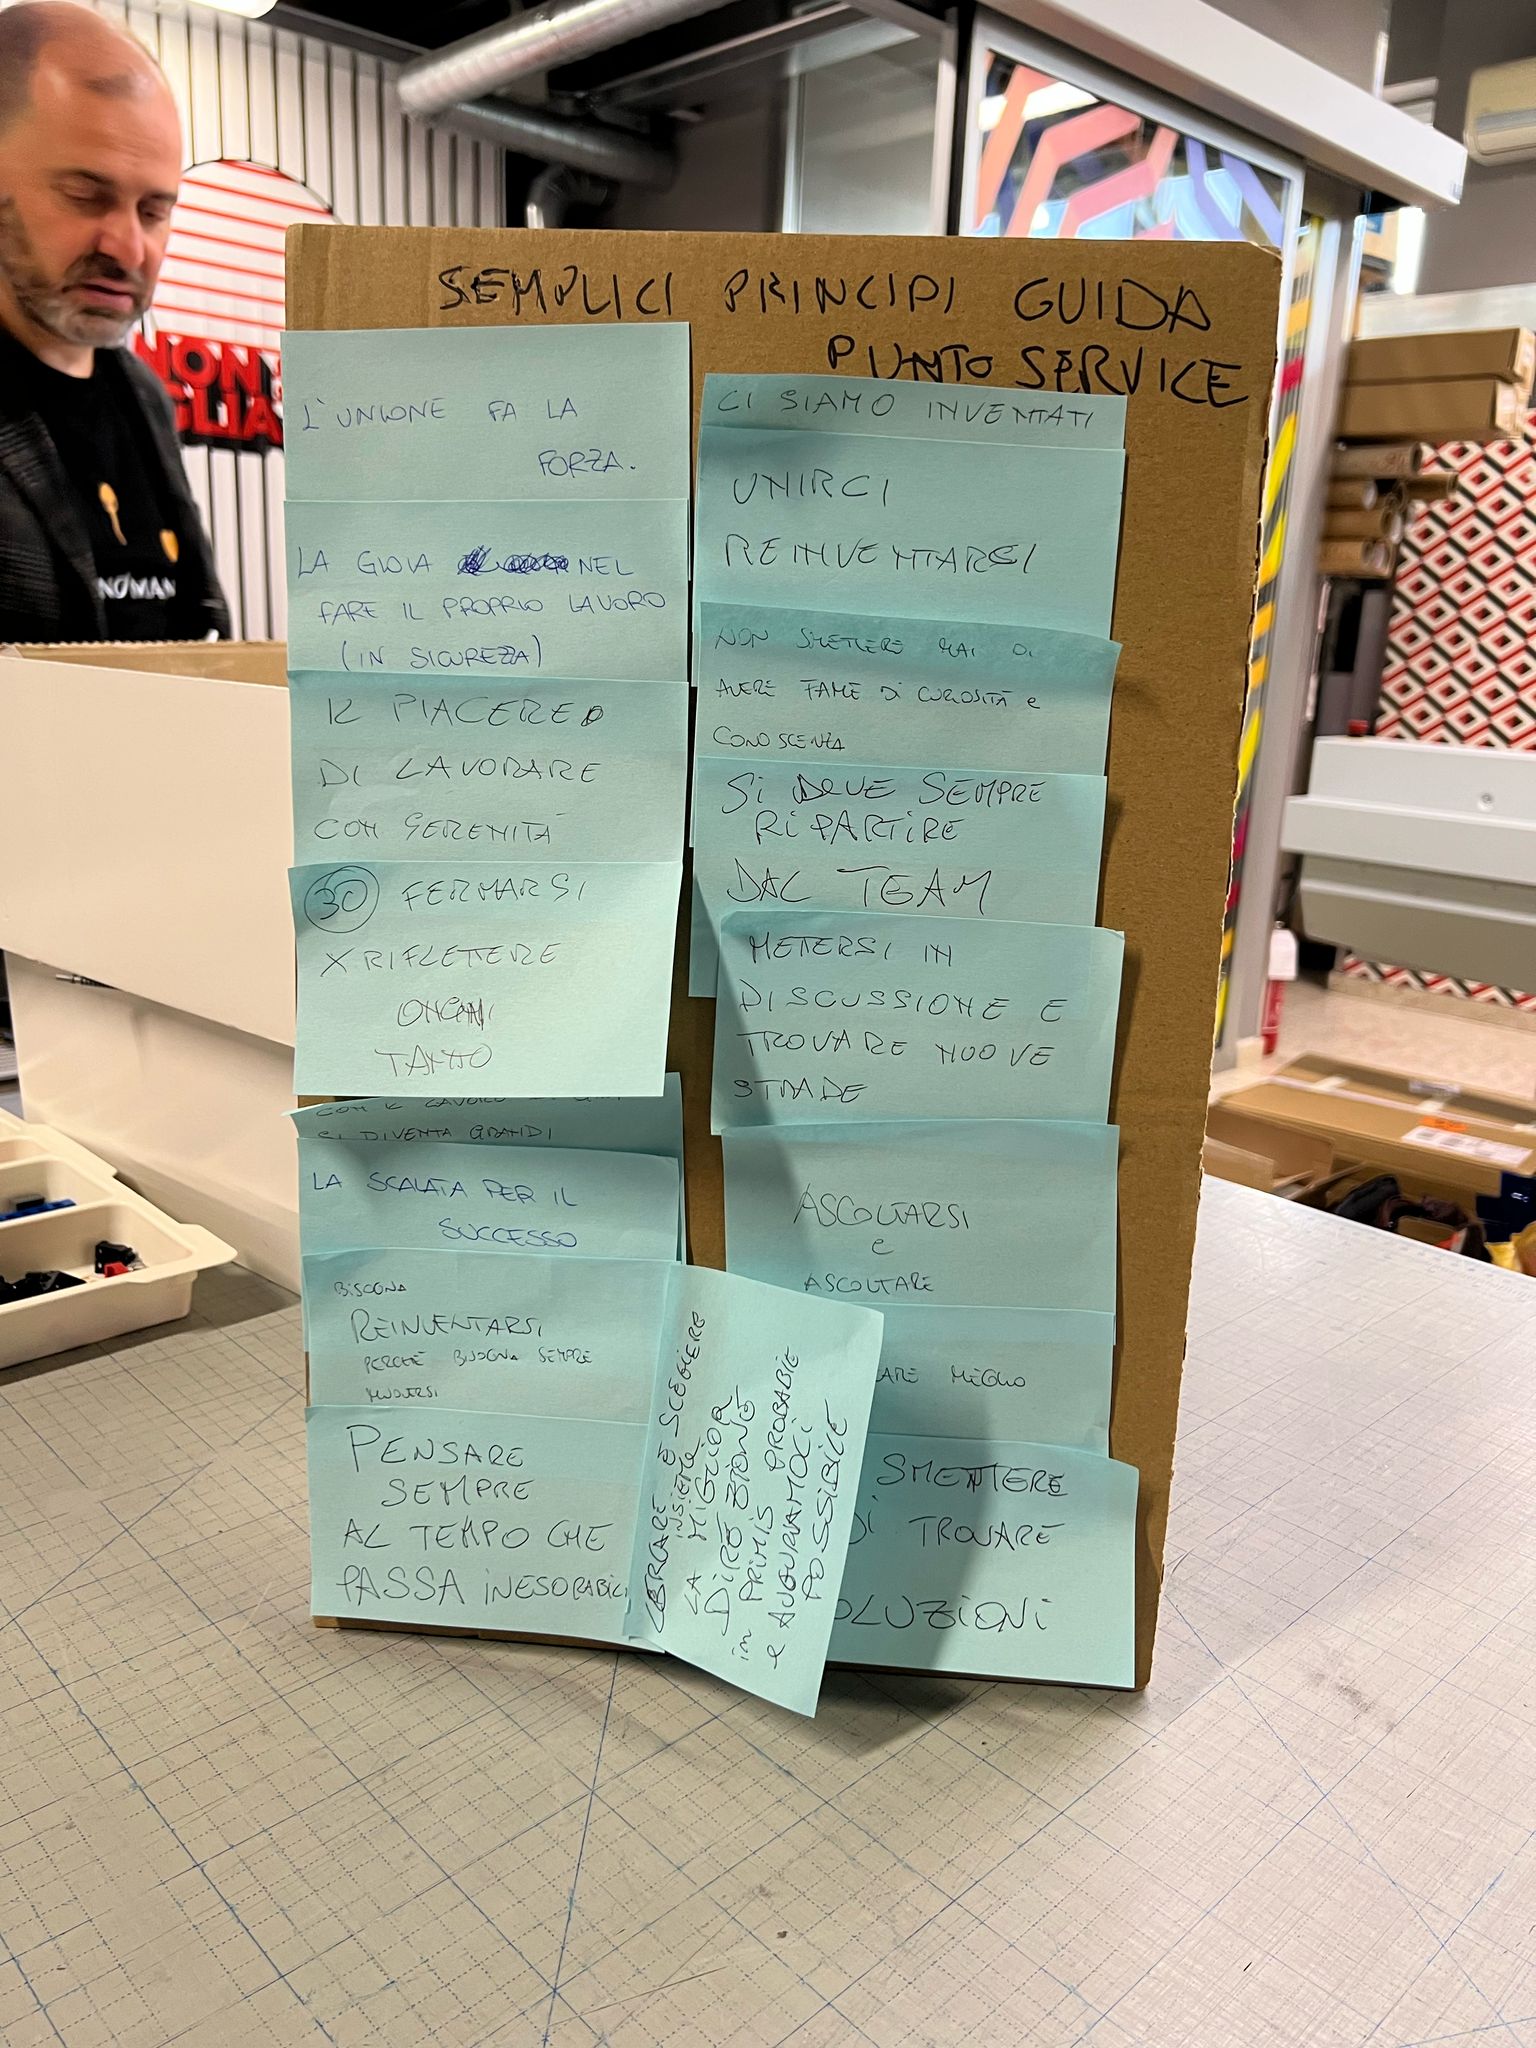 SEMPLICI PRINCIPI GUIDA
PUNTO SERVICE
L'UNIONE FA LA
FORZA.
LA GIOIA NEL
FARE IL PROPRIO LAVORO
(IN SICUREZZA)
IL PIACERE
DI LAVORARE
CON SERENITÀ
30 FERMARSI
X RIFLETTERE
OGNI
TANTO
SI DIVENTA GRANDI
LA SCALATA PER IL
SUCCESSO
BISOGNA
REINVENTARSI
PERCHÈ BISOGNA SEMPRE
MUOVERSI
PENSARE
SEMPRE
AL TEMPO CHE
PASSA
CI SIAMO INVENTATI
UNIRCI
REINVENTARSI
NON SMETTERE MAI DI
AVERE FAME DI CURIOSITÀ e
CONOSCENZA
Si DEVE SEMPRE
RIPARTIRE
DAL TEAM
METERSI IN
DISCUSSIONE E
TROVARE NUOVE
STRADE
ASCOLTARSI
e
ASCOLTARE
MEGLIO
SMETTERE
Di TROVARE
INSIEME
LA MIGLIOR
DIREZIONE
in PRIMIS PROBABILE
e
POSSIBILE
NON
NO MAN